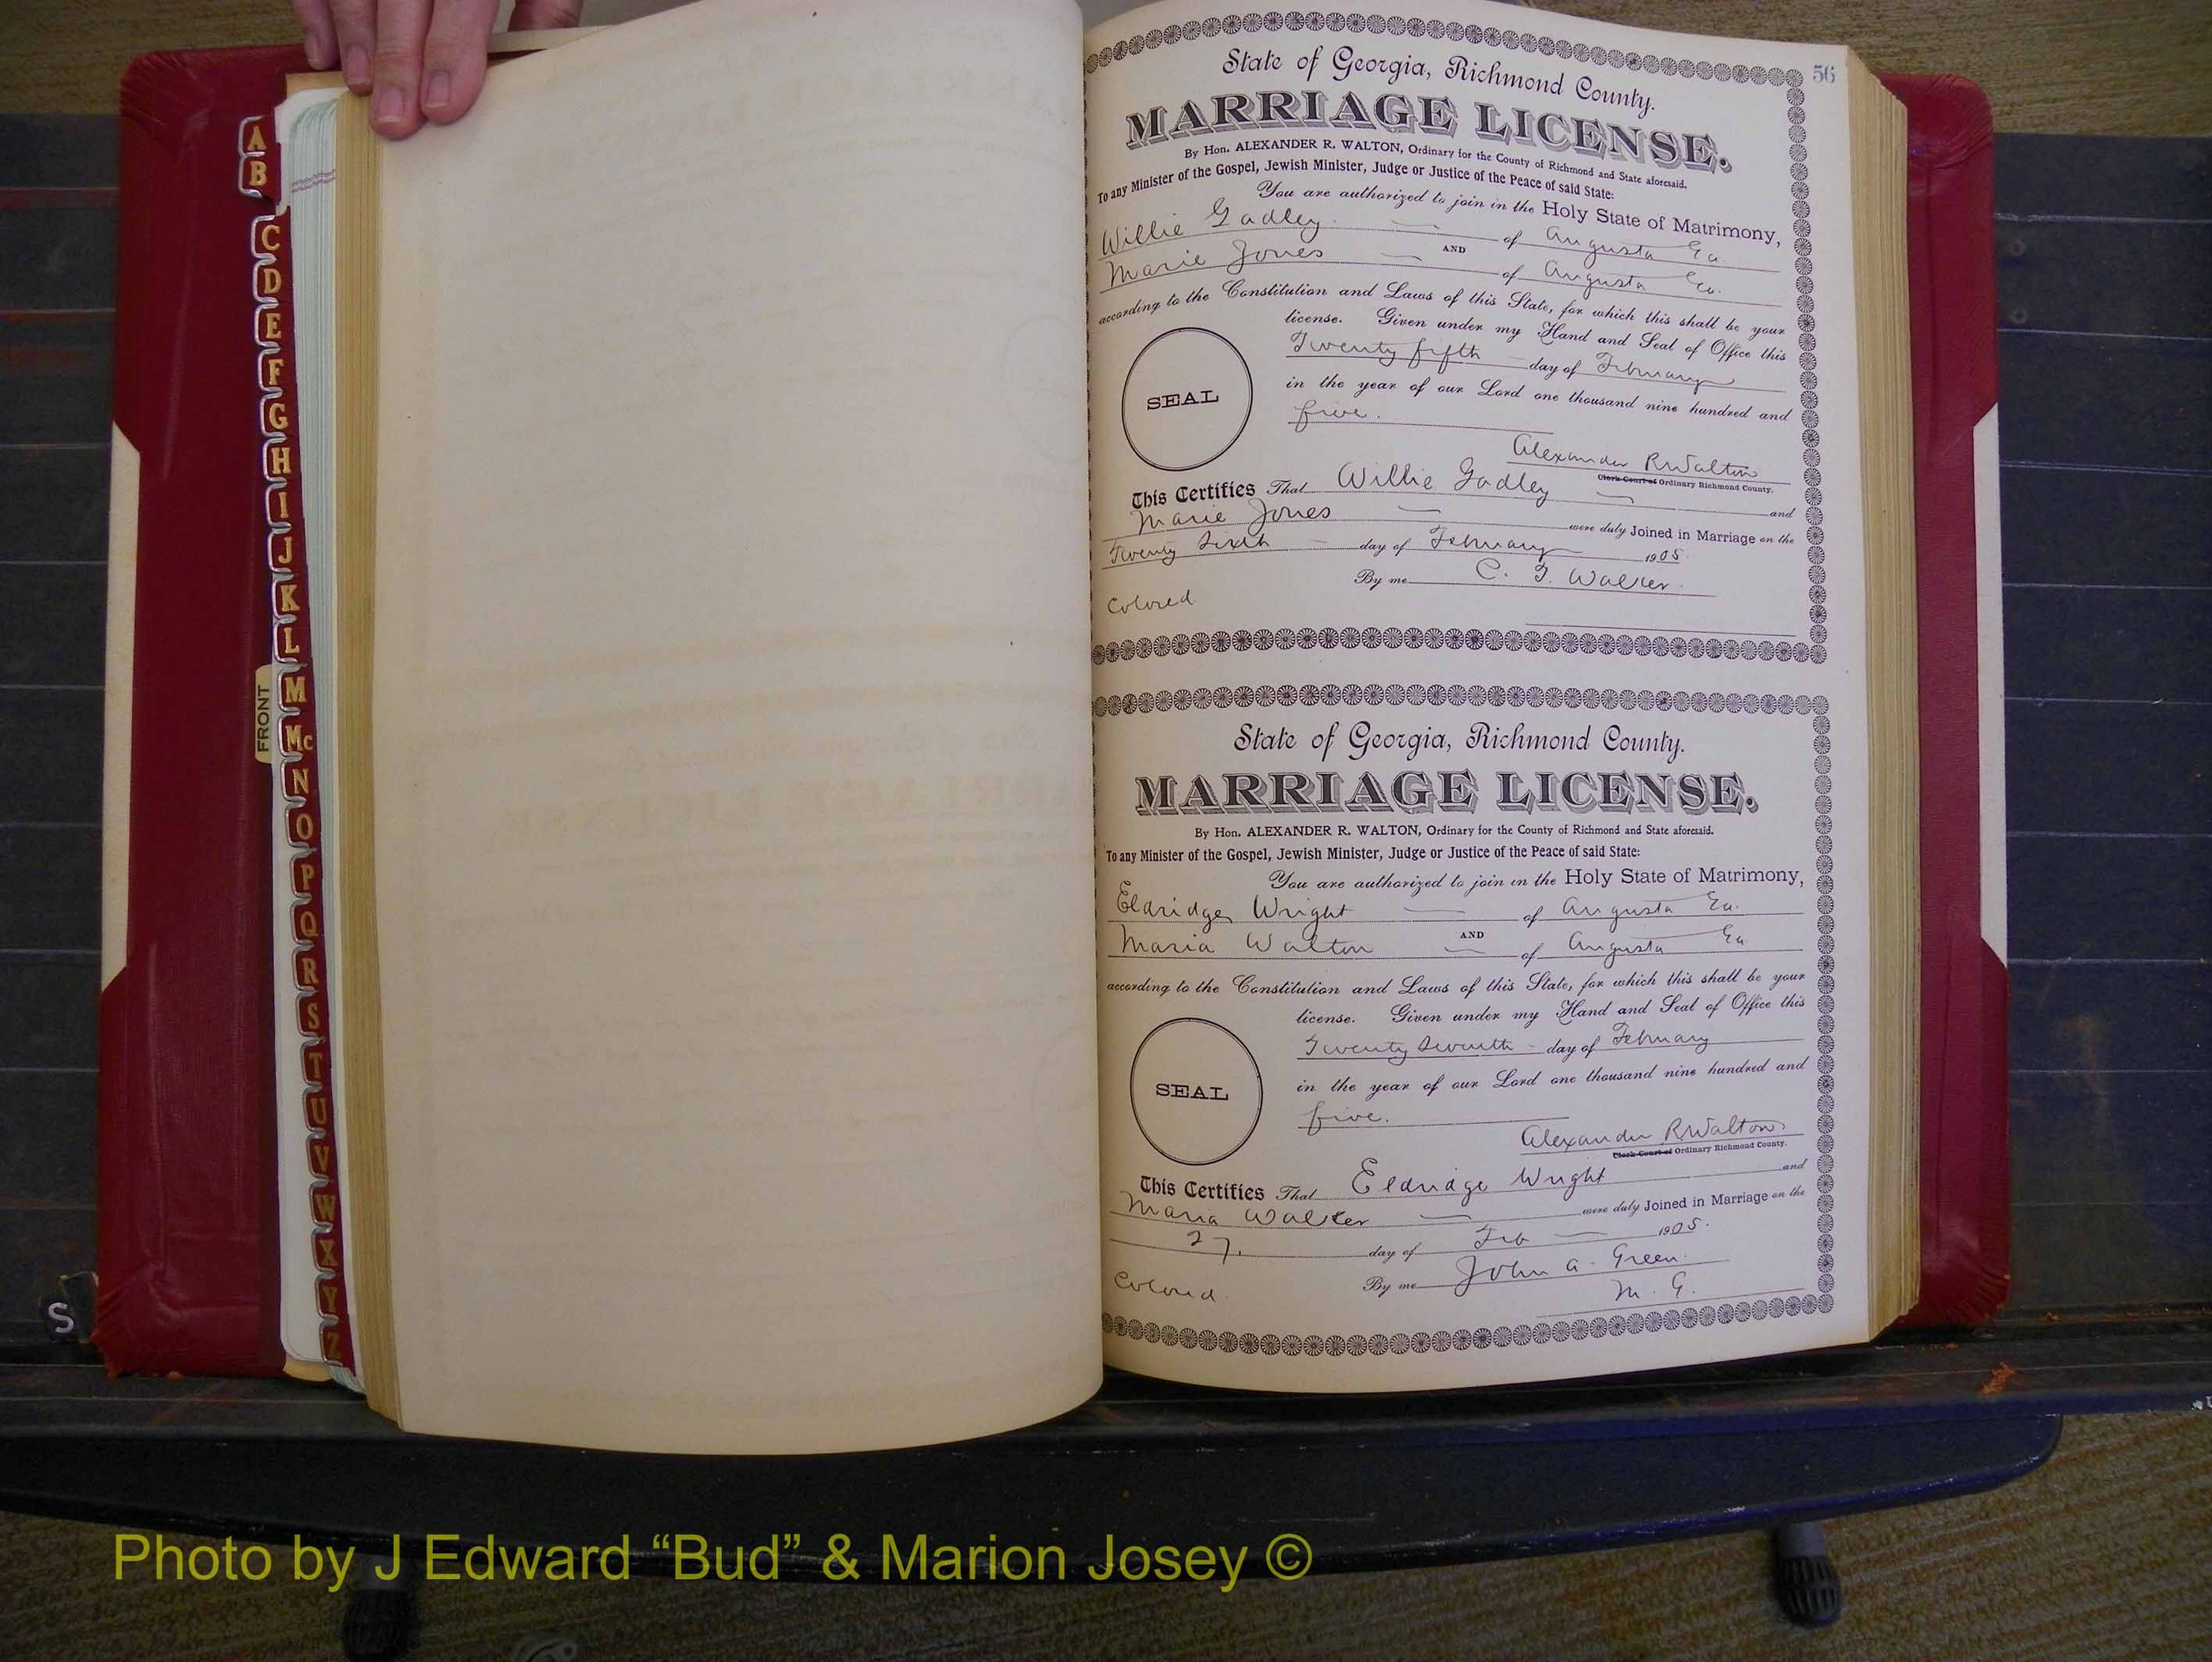 A
B
C
D
E
F
G
H
I
J
K
L
M
Mc
N
O
P
Q
R
S
T
U
V
W
X
Y
Z
FRONT
S
56
State of Georgia, Richmond County.
MARRIAGE LICENSE.
By Hon. ALEXANDER R. WALTON, Ordinary for the County of Richmond and State aforesaid.
To any Minister of the Gospel, Jewish Minister, Judge or Justice of the Peace of said State:
You are authorized to join in the Holy State of Matrimony,
Willie Gadley of Augusta Ga.
AND
Marie Jones of Augusta Ga.
according to the Constitution and Laws of this State, for which this shall be your
license. Given under my Hand and Seal of Office this
Twenty fifth day of February
in the year of our Lord one thousand nine hundred and
SEAL
five.
Alexander R Walton
Clerk Court of Ordinary Richmond County.
This Certifies That Willie Gadley and
Marie Jones were duly Joined in Marriage on the
Twenty Sixth day of February 1905.
By me C. T. Walker.
Colored
State of Georgia, Richmond County.
MARRIAGE LICENSE.
By Hon. ALEXANDER R. WALTON, Ordinary for the County of Richmond and State aforesaid.
To any Minister of the Gospel, Jewish Minister, Judge or Justice of the Peace of said State:
You are authorized to join in the Holy State of Matrimony,
Eldridge Wright of Augusta Ga.
AND
Maria Walton of Augusta Ga
according to the Constitution and Laws of this State, for which this shall be your
license. Given under my Hand and Seal of Office this
Twenty Seventh day of February
SEAL
in the year of our Lord one thousand nine hundred and
five.
Alexander R Walton
Clerk Court of Ordinary Richmond County.
This Certifies That Eldridge Wright and
Maria Walker were duly Joined in Marriage on the
27. day of Feb 1905.
By me John A. Green.
M. G.
Colored.
Photo by J Edward “Bud” & Marion Josey ©